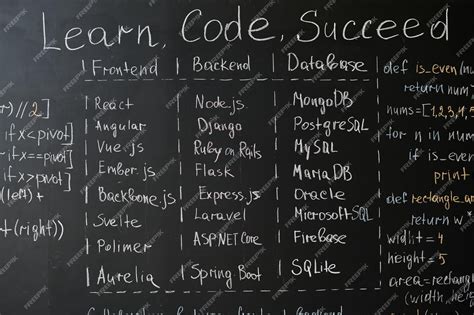 Learn, Code, Succeed
Frontend Backend Database
React Node.js MongoDB
Angular Django PostgreSQL
Vue.js Ruby on Rails MySQL
Ember.js Flask MariaDB
Backbone.js Express.js Oracle
Svelte Laravel Microsoft SQL
Polimer ASP.NET Core Firebase
Aurelia Spring Boot SQLite
//2]
if x<pivot]
if x>pivot]
(left) +
t(right))
def is_even(nu
return num
nums=[1,2,3,4,5
for n in num
if is_even
print
def rectangle_ar
return w
width = 4
height = 5
area=rectang
(width, heigh